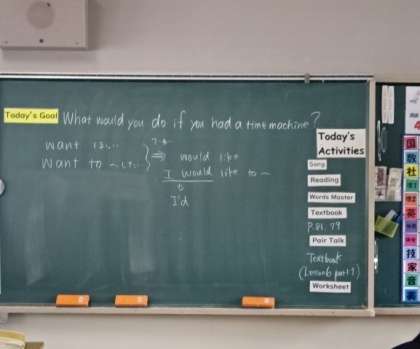 Today's Goal What would you do if you had a time machine?
want ほしい
want to 〜したい
would like
I would like to 〜
I'd
Today's
Activities
Song
Reading
Words Master
Textbook
P.81, 79
Pair Talk
Textbook
(Lesson6 part1)
Worksheet
国
数
社
理
英
技
家
音